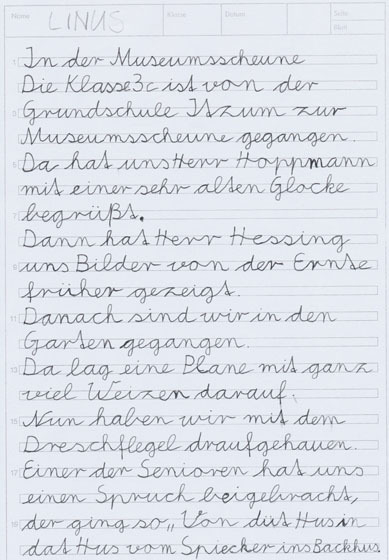 Name LINUS Klasse Datum Seite
Blatt
1 In der Museumsscheune
Die Klasse 3c ist von der
3 Grundschule Itzum zur
Museumsscheune gegangen.
5 Da hat uns Herr Hoppmann
mit einer sehr alten Glocke
7 begrüßt.
Dann hat Herr Hessing
9 uns Bilder von der Ernte
früher gezeigt.
11 Danach sind wir in den
Garten gegangen.
13 Da lag eine Plane mit ganz
viel Weizen darauf.
15 Nun haben wir mit dem
Dreschflegel draufgehauen.
17 Einer der Senioren hat uns
einen Spruch beigebracht,
19 der ging so „Von düt Hus in
dat Hus vom Spiecker ins Backhus